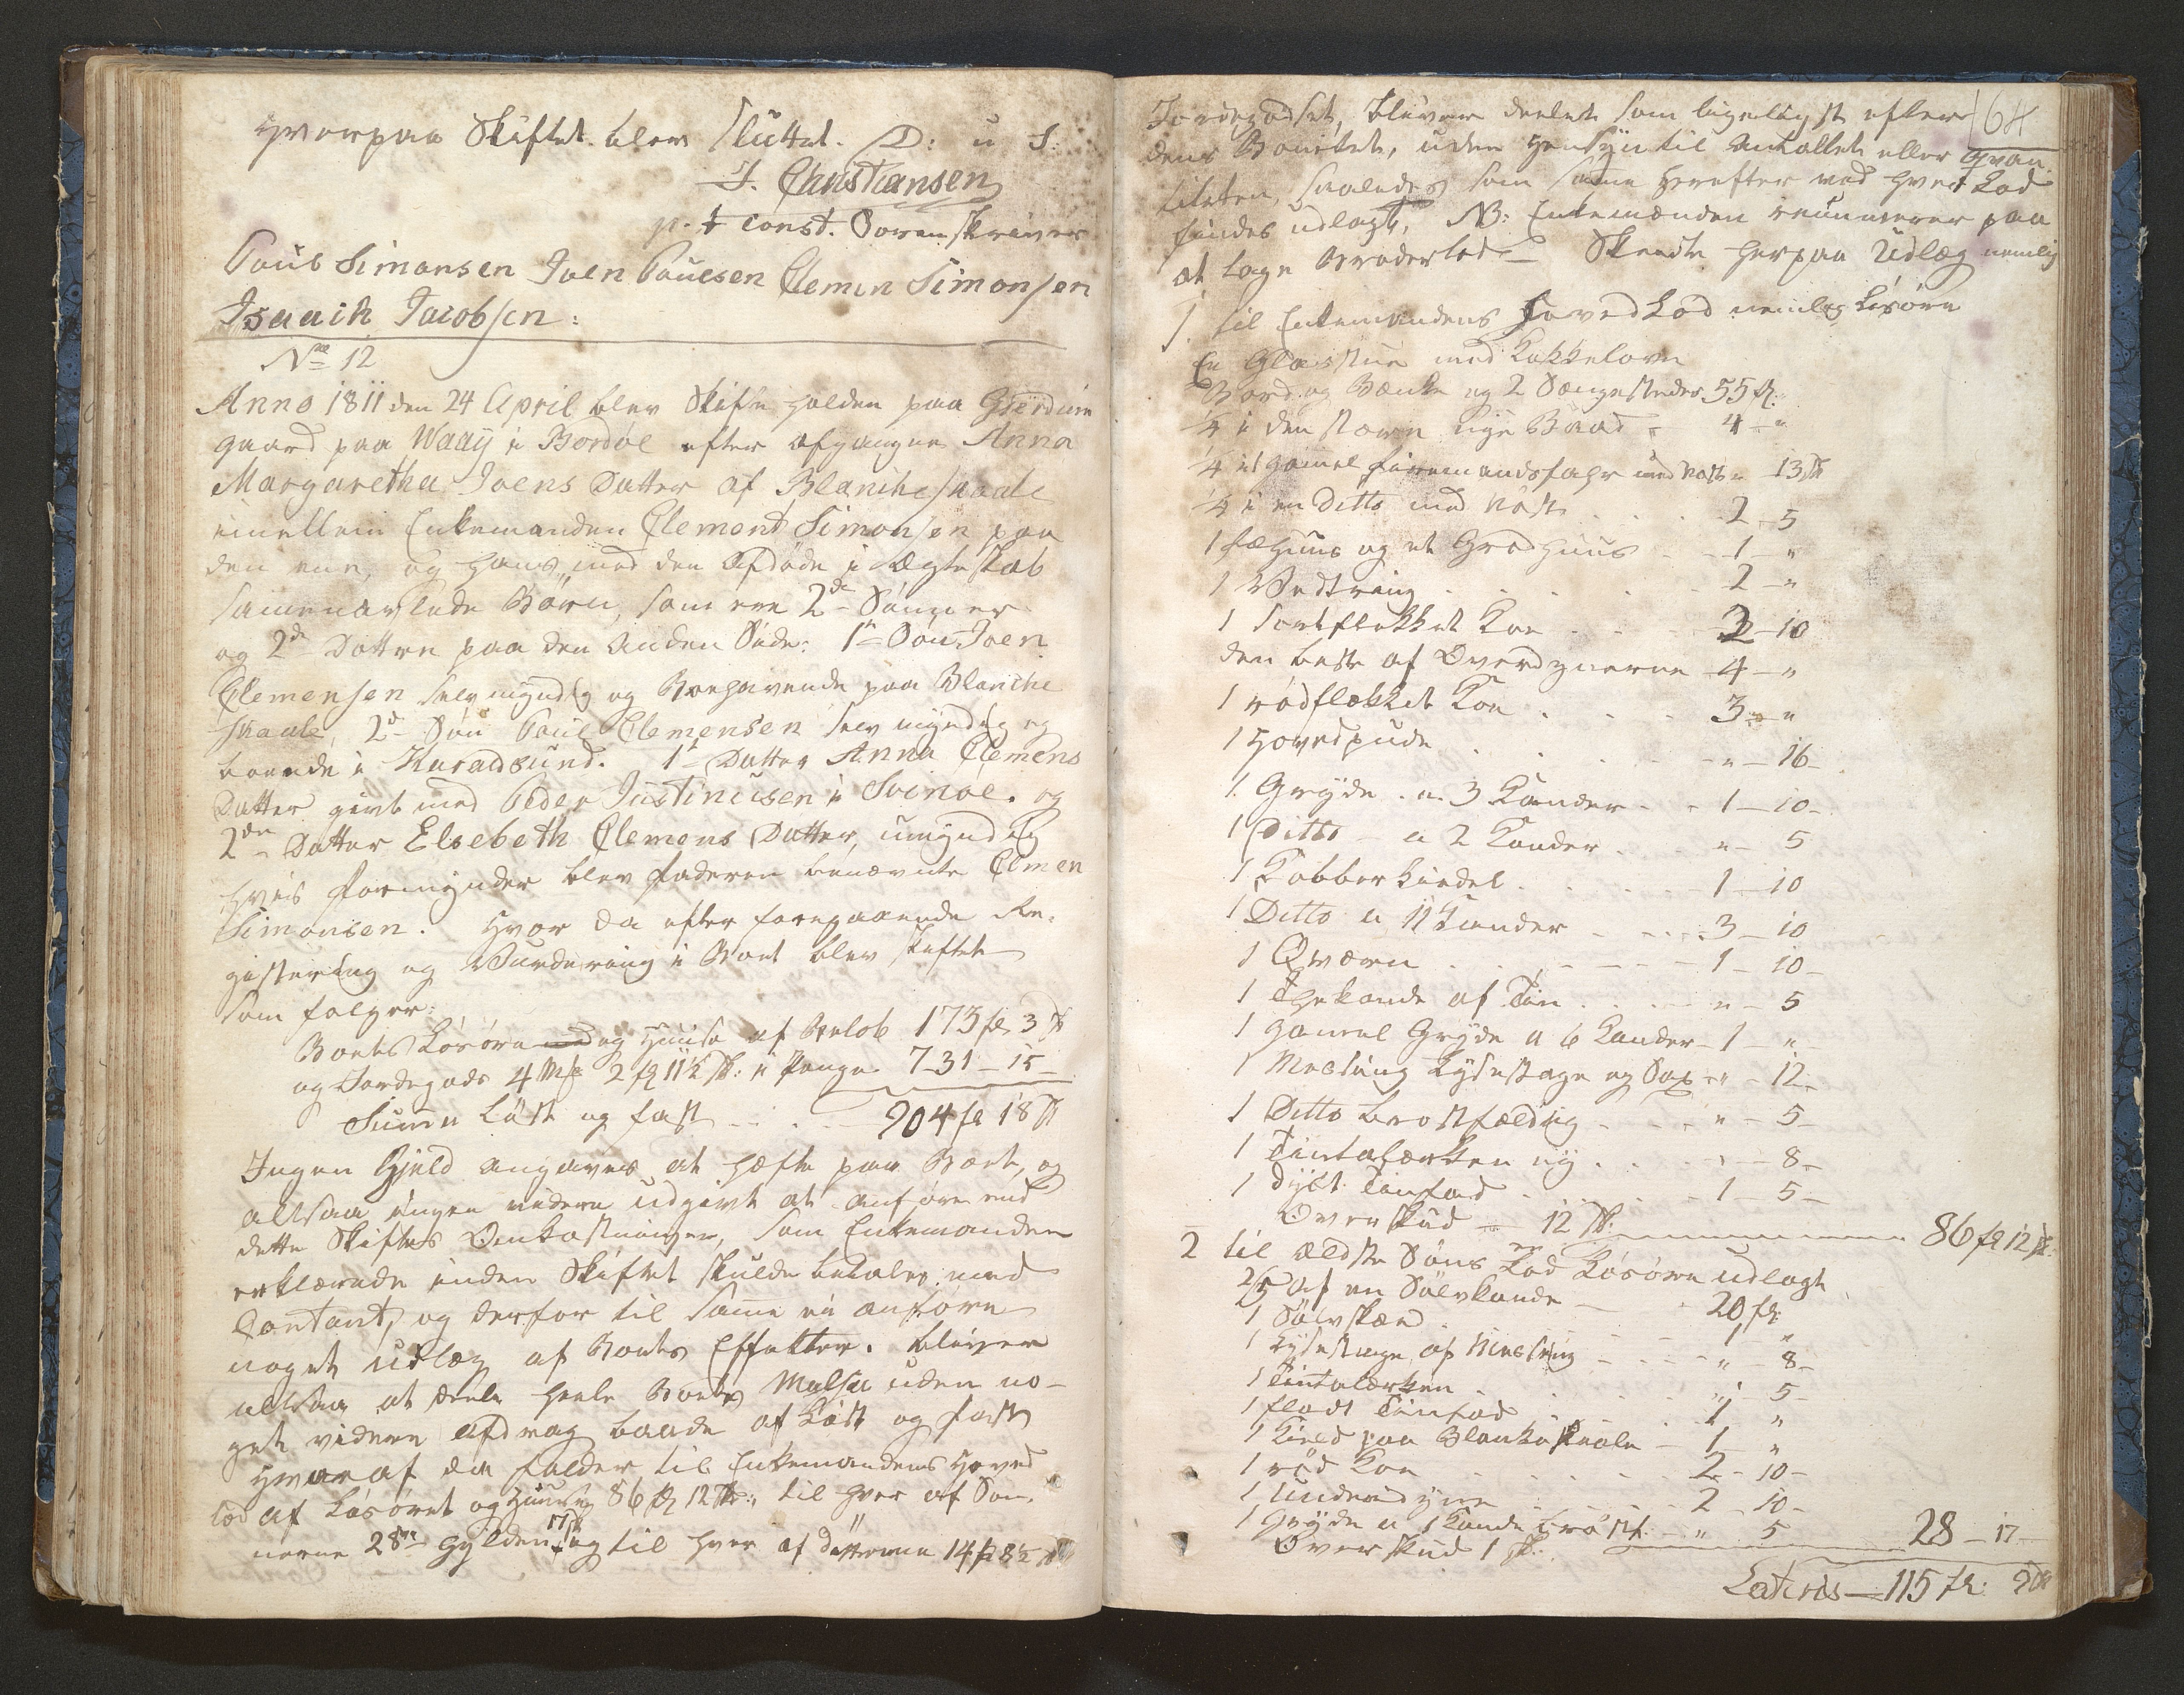 Hvorpaa Skiftet blev sluttet. D: u S:
J. Christiansen
p. t. const. Sorenskriver
Poul Simonsen Joen Poulsen Clemen Simonsen
Isaach Jacobsen:
No 12
Anno 1811 den 24 April blev Skifte holden paa Gierdum
gaard paa Waaÿ i Bordøe efter afgangne Anna
Margaretha Joens Datter af Blancheskaale
imellem Enkemanden Clement Simonsen paa
den ene, og hans med den Afdøde i Ægteskab
sammenavlede Børn, som ere 2de Sønner
og 2de Døttre paa den Anden Side: 1te Søn Joen
Clemensen selv mÿndig og Boehavende paa Blanche
skaale, 2d Søn Poul Clemensen selv mÿndig og
boende i Haraldsund. 1te Datter Anna Clemens
Datter givt med Peder Justinusen i Svinøe. og
2den Datter Elsebeth Clemens Datter, umÿndig
hvis Formÿnder blev Faderen benævnte Clemen
Simonsen. Hvor da efter foregaaende Re-
gistering og Vurdering i Boet blev skiftet
som følger:
Boets Løsøre og Huuse af Beløb 173 fl 3 s
og Jordegods 4 Mk 2 fl 11½ s: i Penge 731 – 15
Summa Løst og fast 904 fl 18 s
Ingen Gjeld angaves at hæfte paa Boet, og
altsaa ingen videre udgivt at anføre end
dette Skiftes Omkostninger, som Enkemanden
erklærede inden Skiftet skulde betales med
Contant, og derfor til samme ei anføres
noget udlæg af Boets Effekter. bliver
altsaa at deele heele Boets Massa uden no-
get videre afdrag baade af Løst og fast
Hvoraf da falder til Enkemandens Hoved
lod af Løsøret og Huuse 86 fl 12 s: til hver af Søn-
nerne 28 Gÿlden 17 s og til hver af døttrene 14 fl 8½ s
164
Jordegodset, bliver deelet som ligeligst efter
dens Bonitet, uden Hensÿn til Antallet eller Qvan
titeten, saaledes som samme herefter ved hver Lod
findes udlagt, NB: Enkemanden renuncerer paa
at tage Broderlod Skeedte herpaa Udlæg nemlig
1. til Enkemandens Hoved Lod nemlig Løsøre
En Glasstue med Kakkelovn
Bord og Bænke og 2 Sengesteder 55 fl.
¼ i den større nÿe Baad 4 – "
¼ i et gamel færemandsfahr med Nøst " 13 s
¼ i en Ditto med Nøst 2 – 5
1 Fæhuus og et Grødhuus 1 – "
1 Vedtring 2 – "
1 sortflekket Koe 2 – 10
den beste af Overdÿnerne 4 – "
1 rødflekket Koe 3 – "
1 Hovedpude " – 16
1 Grÿde a 3 Kander 1 – 10
1 Ditto a 2 Kander " – 5
1 Kobberkiedel 1 – 10
1 Ditto a 11 Kander 3 – 10
1 Qværn 1 – 10
1 Thekande af Tin " – 5
1 gammel Grÿde a 6 Kander 1 – "
1 Messing Lÿsestage og Sax " – 12
1 Ditto brøstfældig " – 5
1 Tintalerken nÿ " – 8
1 dÿbt Tinfad 1 – 5
Overskud 12 s. 86 fl 12 s
2 til ældste Søns Lod er Løsøre udlagt
2/5 af en Sølvkande 20 fl
1 Sølvskee 1 – "
1 Lÿsestage af Messing " – 8
1 Tintalerken " – 5
1 fladt Tinfad 1 "
1 Kield paa Blankeskaale 1 "
1 rød Koe 2 – 10
1 underdÿne 2 – 10
1 Grÿde a 1 Kande brøstf. " 5 28 – 17
Overskud 1 s.
Lateris 115 fl: 9 s